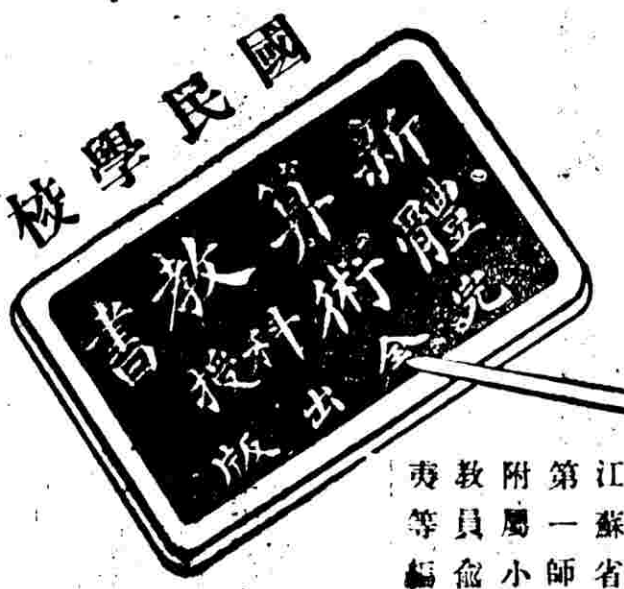 國民學校
新體算術教科授書
完全出版
江蘇省
第一師
附屬小
教員俞
夷等編